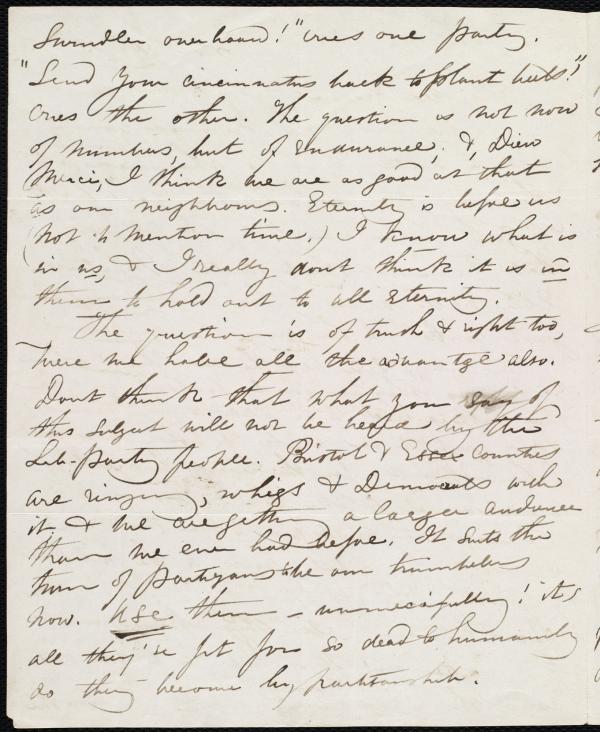 Swindler overboard!" cries one party.
"Send your cincinnatus back to plant beets!"
cries the other. The question is not now
of numbers, but of endurance, &, Dieu
Merci, I think we are as good at that
as our neighbours. Eternity is before us
(not to mention time.) I know what is
in us, & I really dont think it is in
them to hold out to all eternity.
The question is of truth & right too,
There we have all the advantage also.
Dont think that what you say of
this subject will not be heard by the
Lib-Party people. Bristol & Essex counties
are ringing, whigs & Democrats with
it & we are getting a larger audience
than we ever had before. It suits the
turn of partizans to be our trumpeters
now. Use them - unmercifully! its
all they're fit for so dead to humanity
do they become by partisanship.